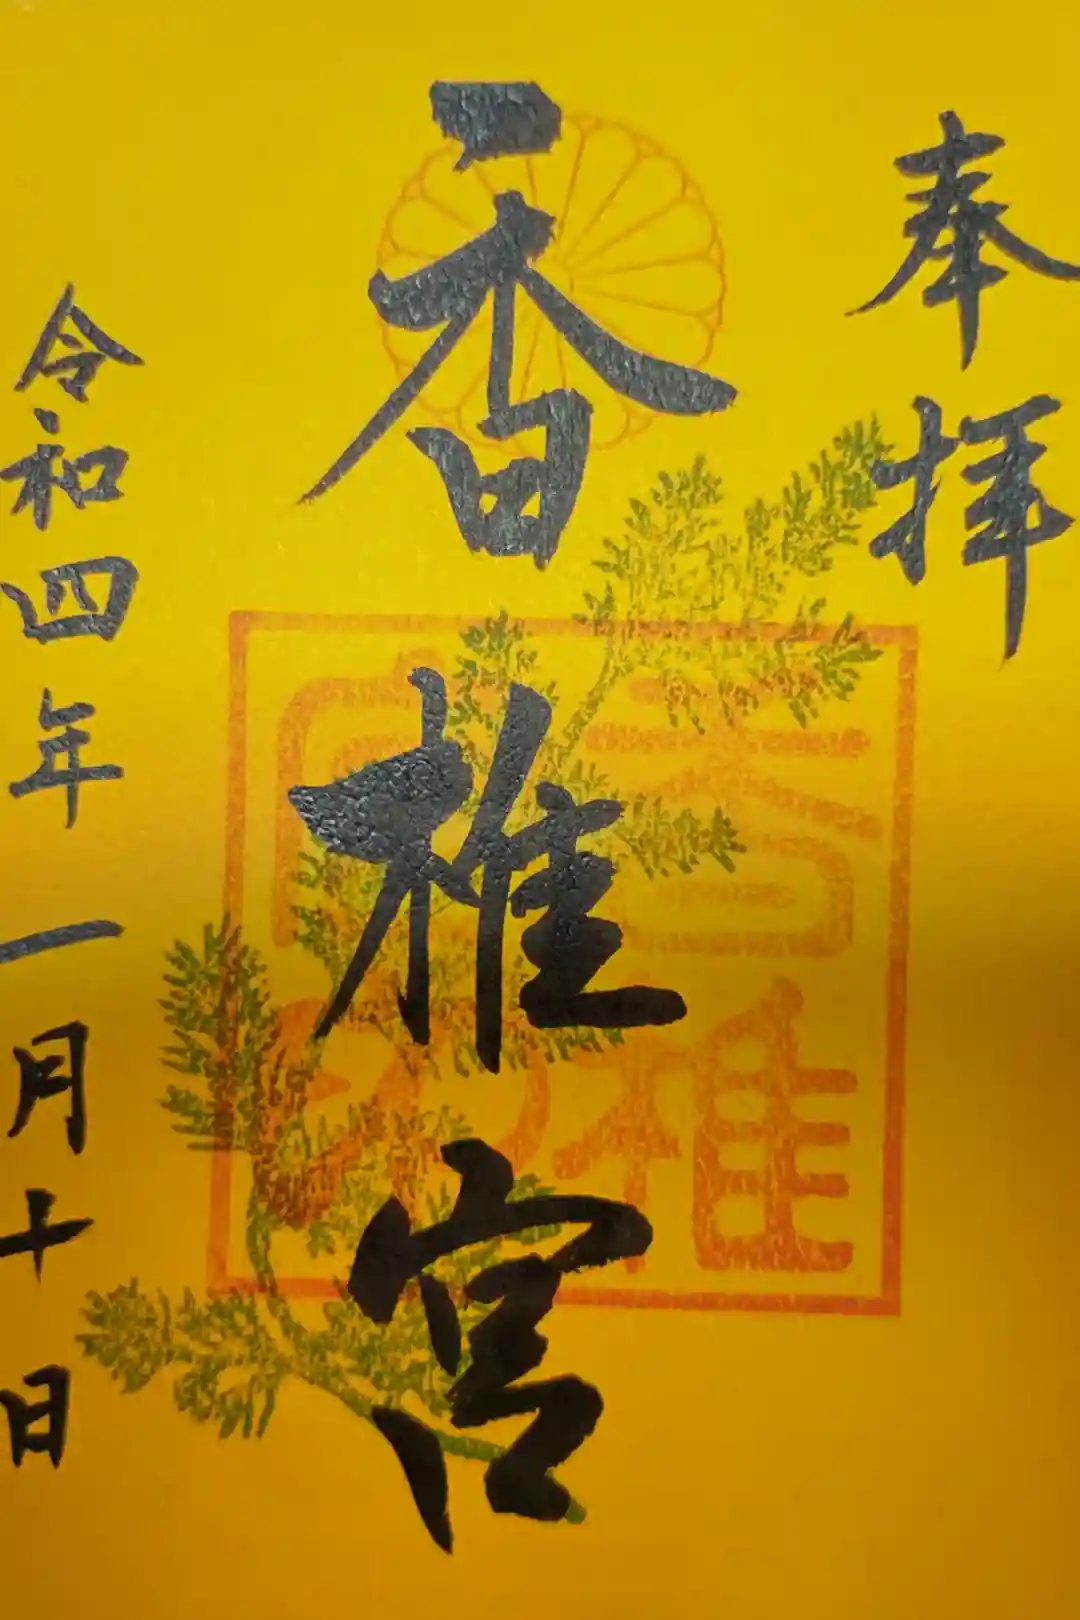 奉拝
香椎宮
香椎宮印
令和四年一月十日